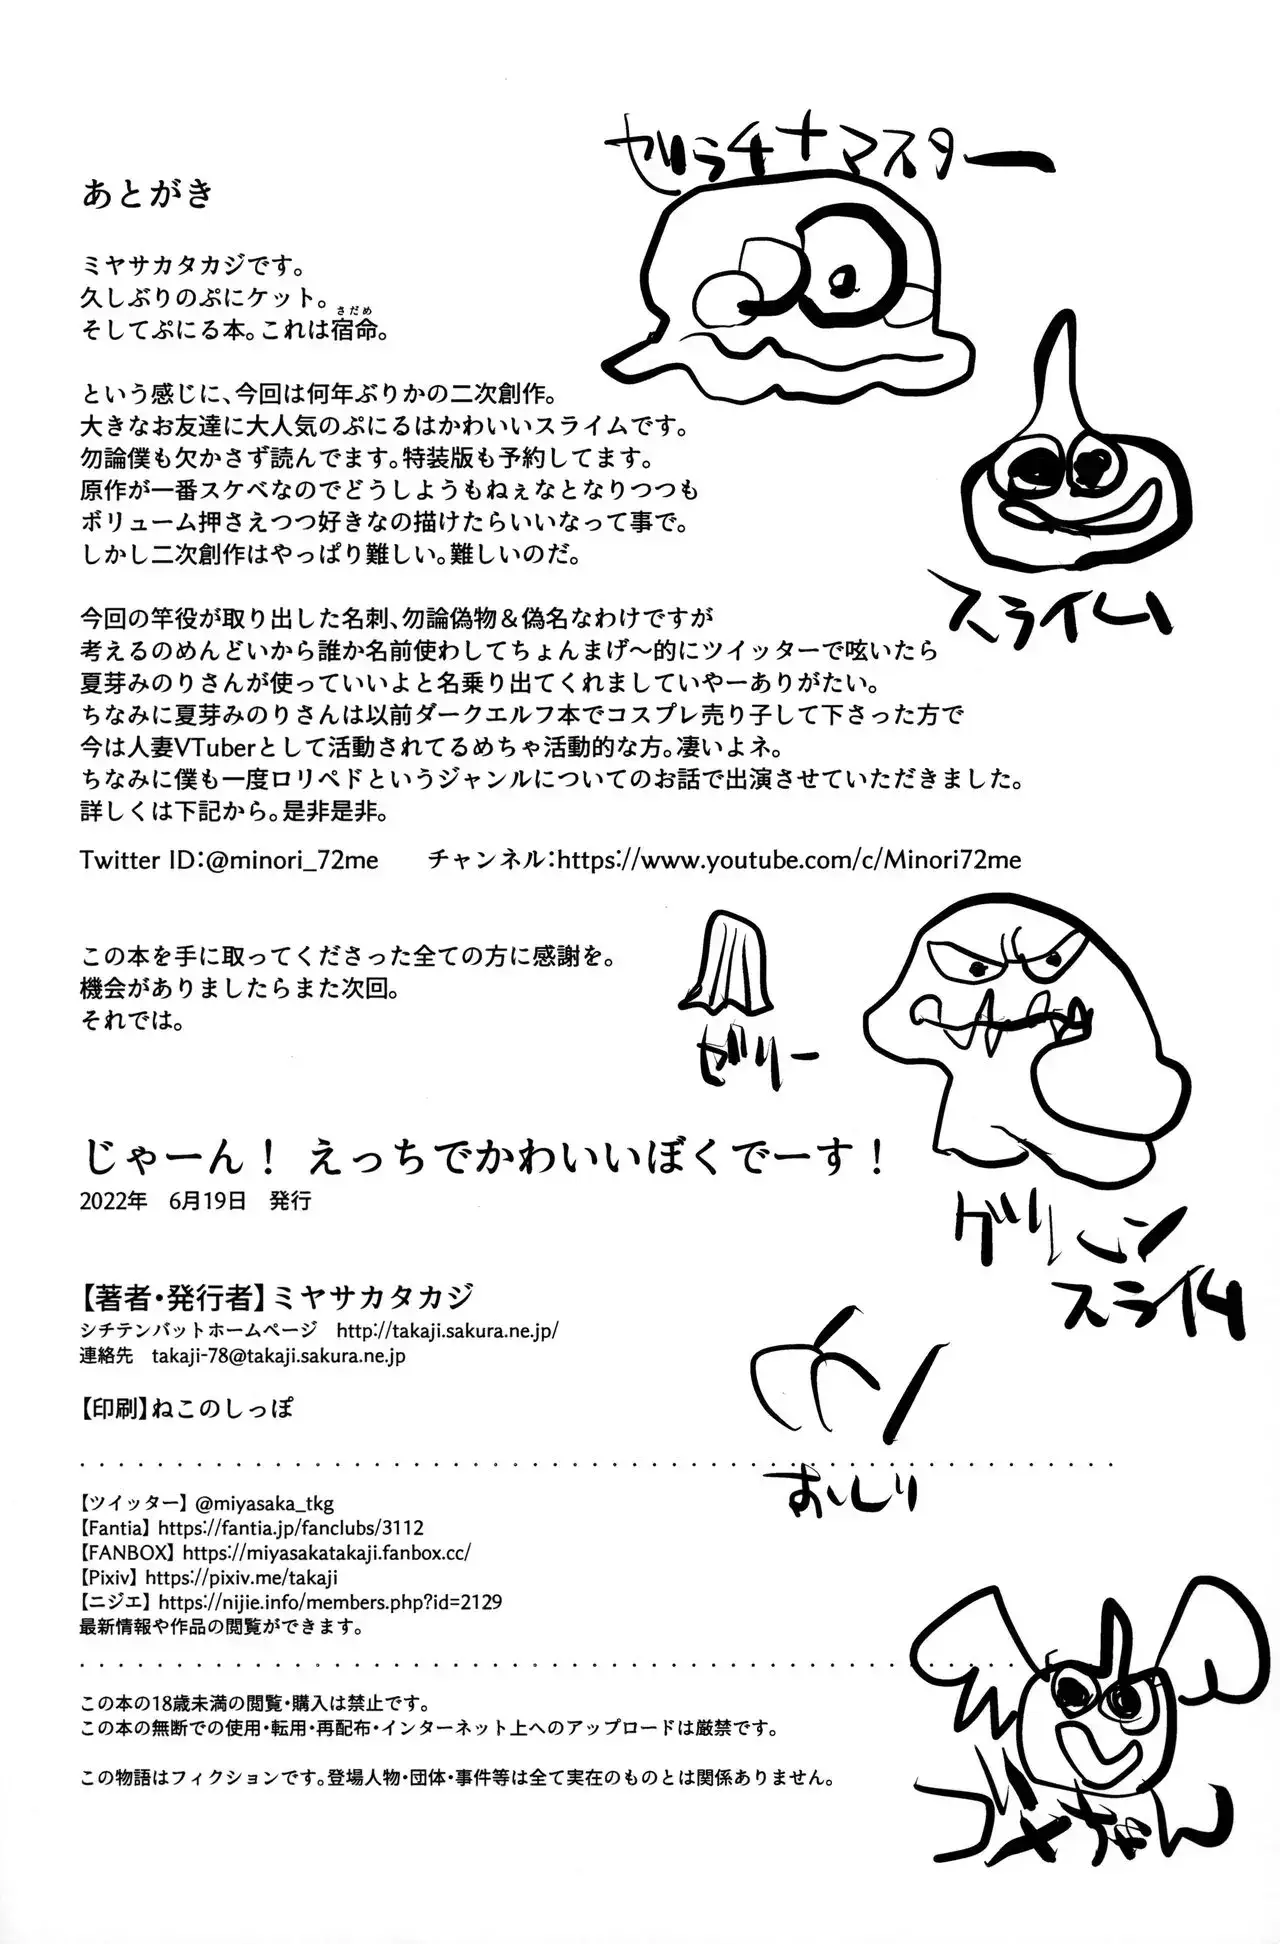 あとがき
ミヤサカタカジです。
久しぶりのぷにケット。
そしてぷにる本。これは宿命。
さだめ
という感じに、今回は何年ぶりかの二次創作。
大きなお友達に大人気のぷにるはかわいいスライムです。
勿論僕も欠かさず読んでます。特装版も予約してます。
原作が一番スケベなのでどうしようもねぇなとなりつつも
ボリューム押さえつつ好きなの描けたらいいなって事で。
しかし二次創作はやっぱり難しい。難しいのだ。
今回の竿役が取り出した名刺、勿論偽物＆偽名なわけですが
考えるのめんどいから誰か名前使わしてちょんまげ～的にツイッターで呟いたら
夏芽みのりさんが使っていいよと名乗り出てくれましていやーありがたい。
ちなみに夏芽みのりさんは以前ダークエルフ本でコスプレ売り子して下さった方で
今は人妻VTuberとして活動されてるめちゃ活動的な方。凄いよネ。
ちなみに僕も一度ロリペドというジャンルについてのお話で出演させていただきました。
詳しくは下記から。是非是非。
Twitter ID：@minori_72me　　チャンネル：https://www.youtube.com/c/Minori72me
この本を手に取ってくださった全ての方に感謝を。
機会がありましたらまた次回。
それでは。
じゃーん！ えっちでかわいいぼくでーす！
2022年　6月19日　発行
【著者・発行者】ミヤサカタカジ
シチテンバットホームページ　http://takaji.sakura.ne.jp/
連絡先　takaji-78@takaji.sakura.ne.jp
【印刷】ねこのしっぽ
【ツイッター】@miyasaka_tkg
【Fantia】https://fantia.jp/fanclubs/3112
【FANBOX】https://miyasakatakaji.fanbox.cc/
【Pixiv】https://pixiv.me/takaji
【ニジエ】https://nijie.info/members.php?id=2129
最新情報や作品の閲覧ができます。
この本の18歳未満の閲覧・購入は禁止です。
この本の無断での使用・転用・再配布・インターネット上へのアップロードは厳禁です。
この物語はフィクションです。登場人物・団体・事件等は全て実在のものとは関係ありません。
ゼラチナマスター
スライム
ゼリー
グリーン
スライム
おしり
ズメちゃん